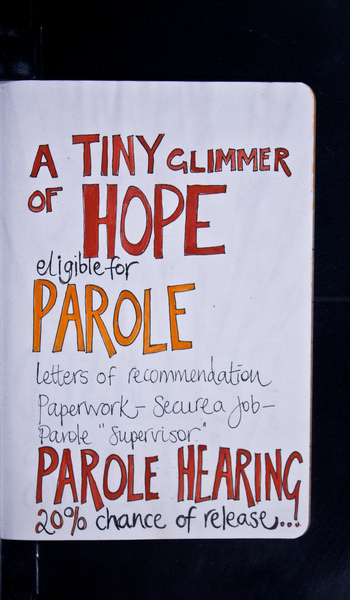 A TINY GLIMMER
OF HOPE
eligible for
PAROLE
letters of recommendation
Paperwork - Secure a Job -
Parole "Supervisor."
PAROLE HEARING
20% chance of release...